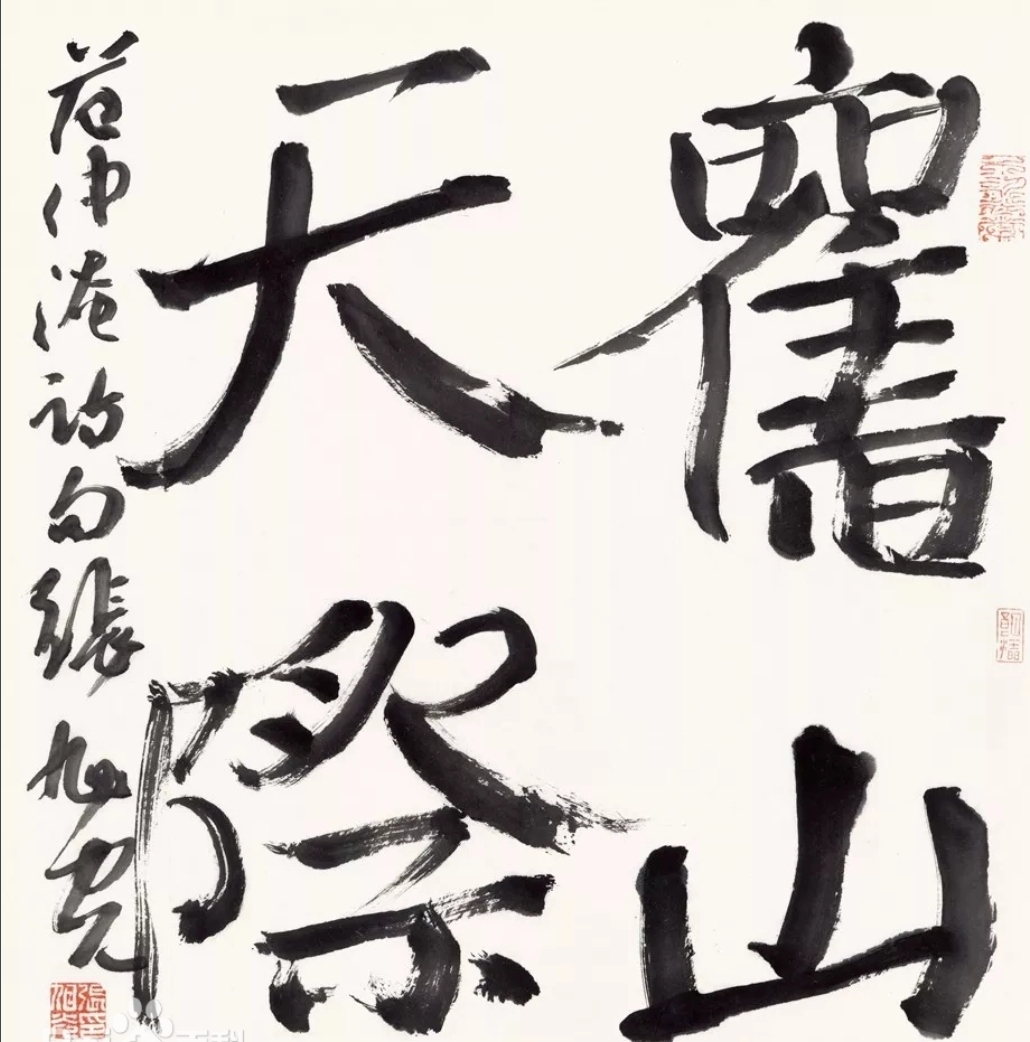 舊山
天際
范仲淹詩句張旭光